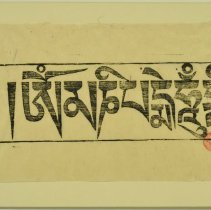 །ཨོཾམཎིཔདྨེཧཱུྃ